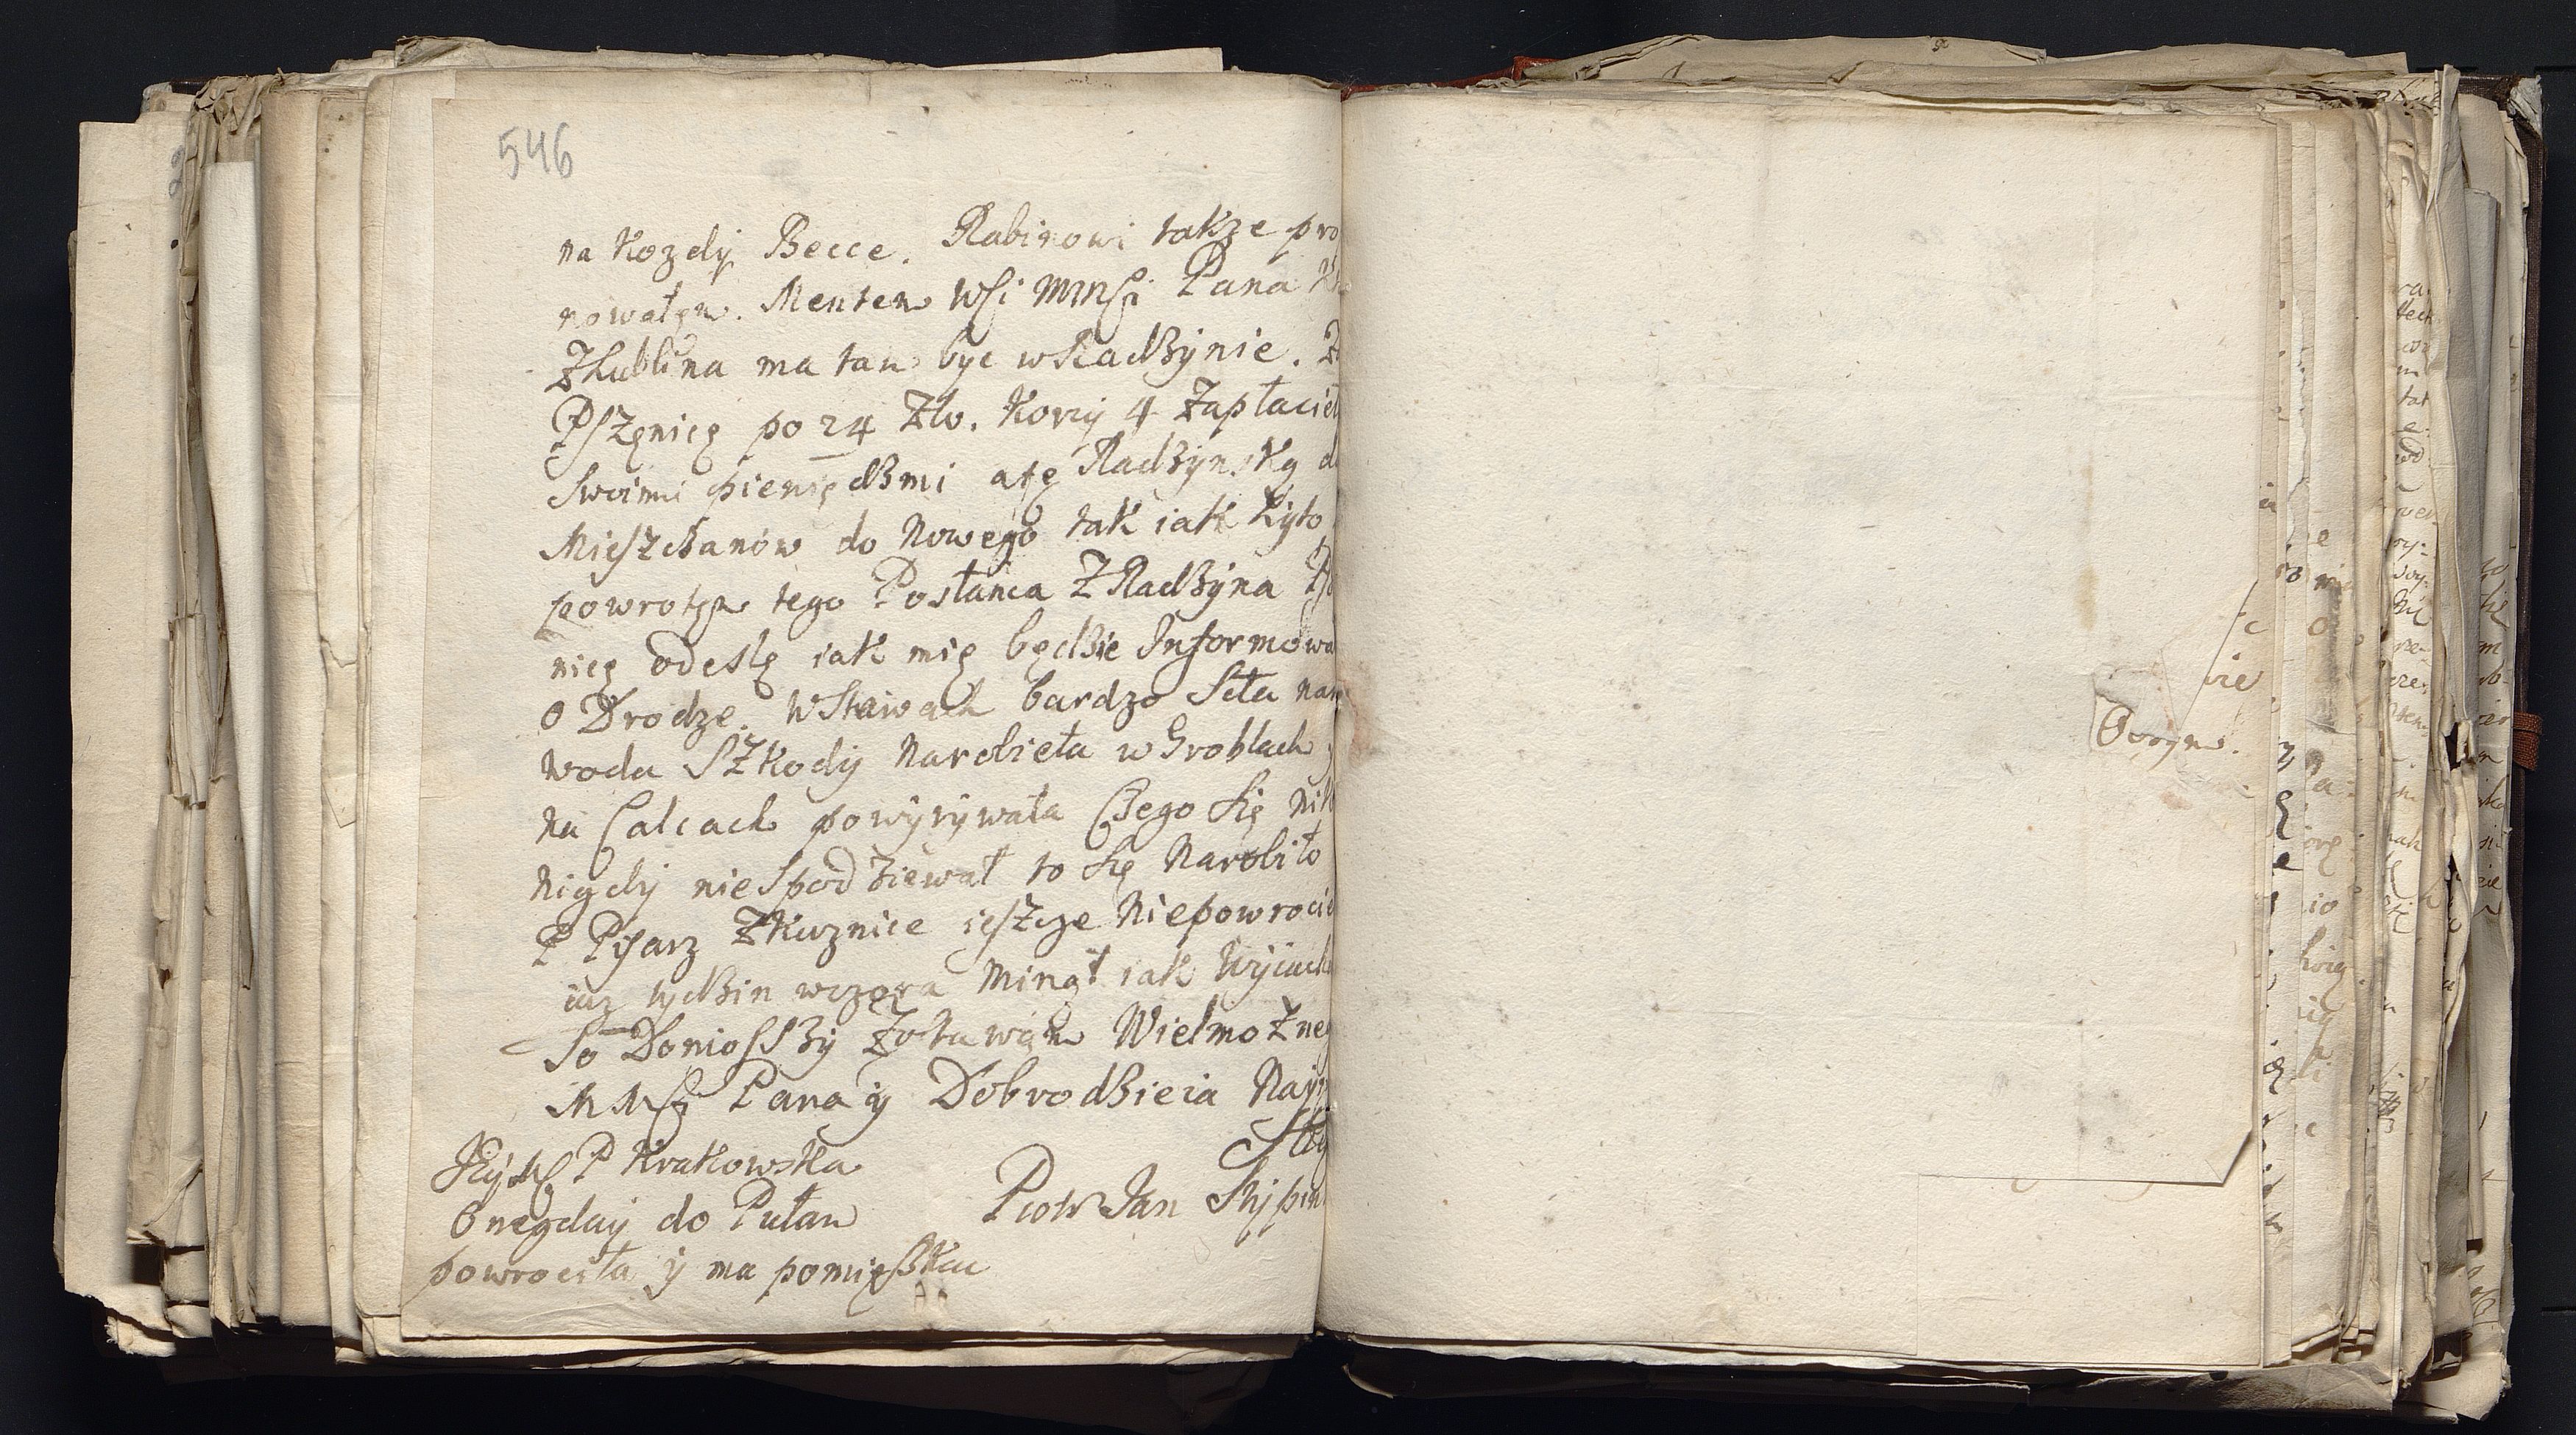 546
na Kozdy Becce. Rabinowi takze pro
nowałem. Mentem WJi MMSci Pana
Z Lublina ma tam byc w Radzynie.
Pszenicę po 24 Zło. Korcy 4 Zapłacie
Swoimi pieniędzmi a tę Radzynską d
Mieszczanow do Nowego tak iak Zyto
powrotem tego Posłanca Z Radzyna
nicę odeslę iak mię będzie Informowa
O Drodze. W Stawach bardzo Siła nam
Woda SZkody Narobieła w Groblach
Na Calcach powyrywała Czego Się Nik
Nigdy nie Spodziewał to Się Narobiło
P Pisarz Z Kuznice ieszcze Niepowrocie
iuz tydzin wczora Minął iak Wyiach
To Doniosszy Zostawam Wielmozneg
M MSci Pana y Dobrodzieia Nayn
Słu
JeyMć P Krakowska
Onegday do Puław
powrociła y ma pomięszka
Piotr Jan